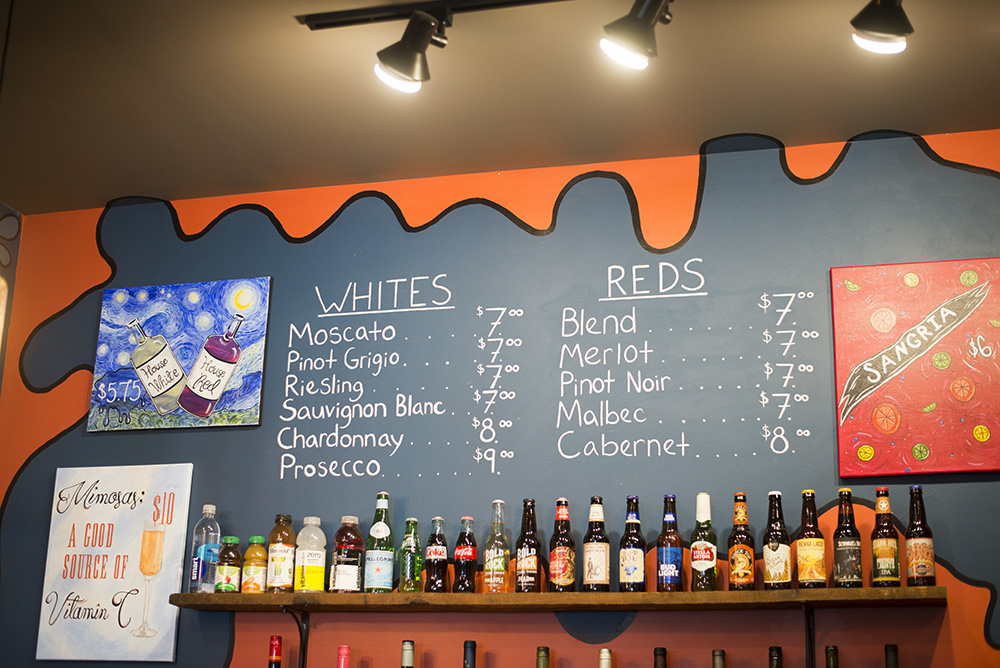 WHITES
Moscato . . . . . . . $7.00
Pinot Grigio . . . . . . . $7.00
Riesling . . . . . . . $7.00
Sauvignon Blanc . . $7.00
Chardonnay . . . . . $8.00
Prosecco . . . . . . . $9.00
REDS
Blend . . . . . . . $7.00
Merlot . . . . . . . $7.00
Pinot Noir . . . . . . $7.00
Malbec . . . . . . . $7.00
Cabernet . . . . . . $8.00
House White
House Red
$5.75
SANGRIA
$6
Mimosas:
$10
A GOOD
SOURCE OF
Vitamin C
smart
zero
PELLEGRINO
Coke
BOLD ROCK
BOLD ROCK
BUD LIGHT
STELLA ARTOIS